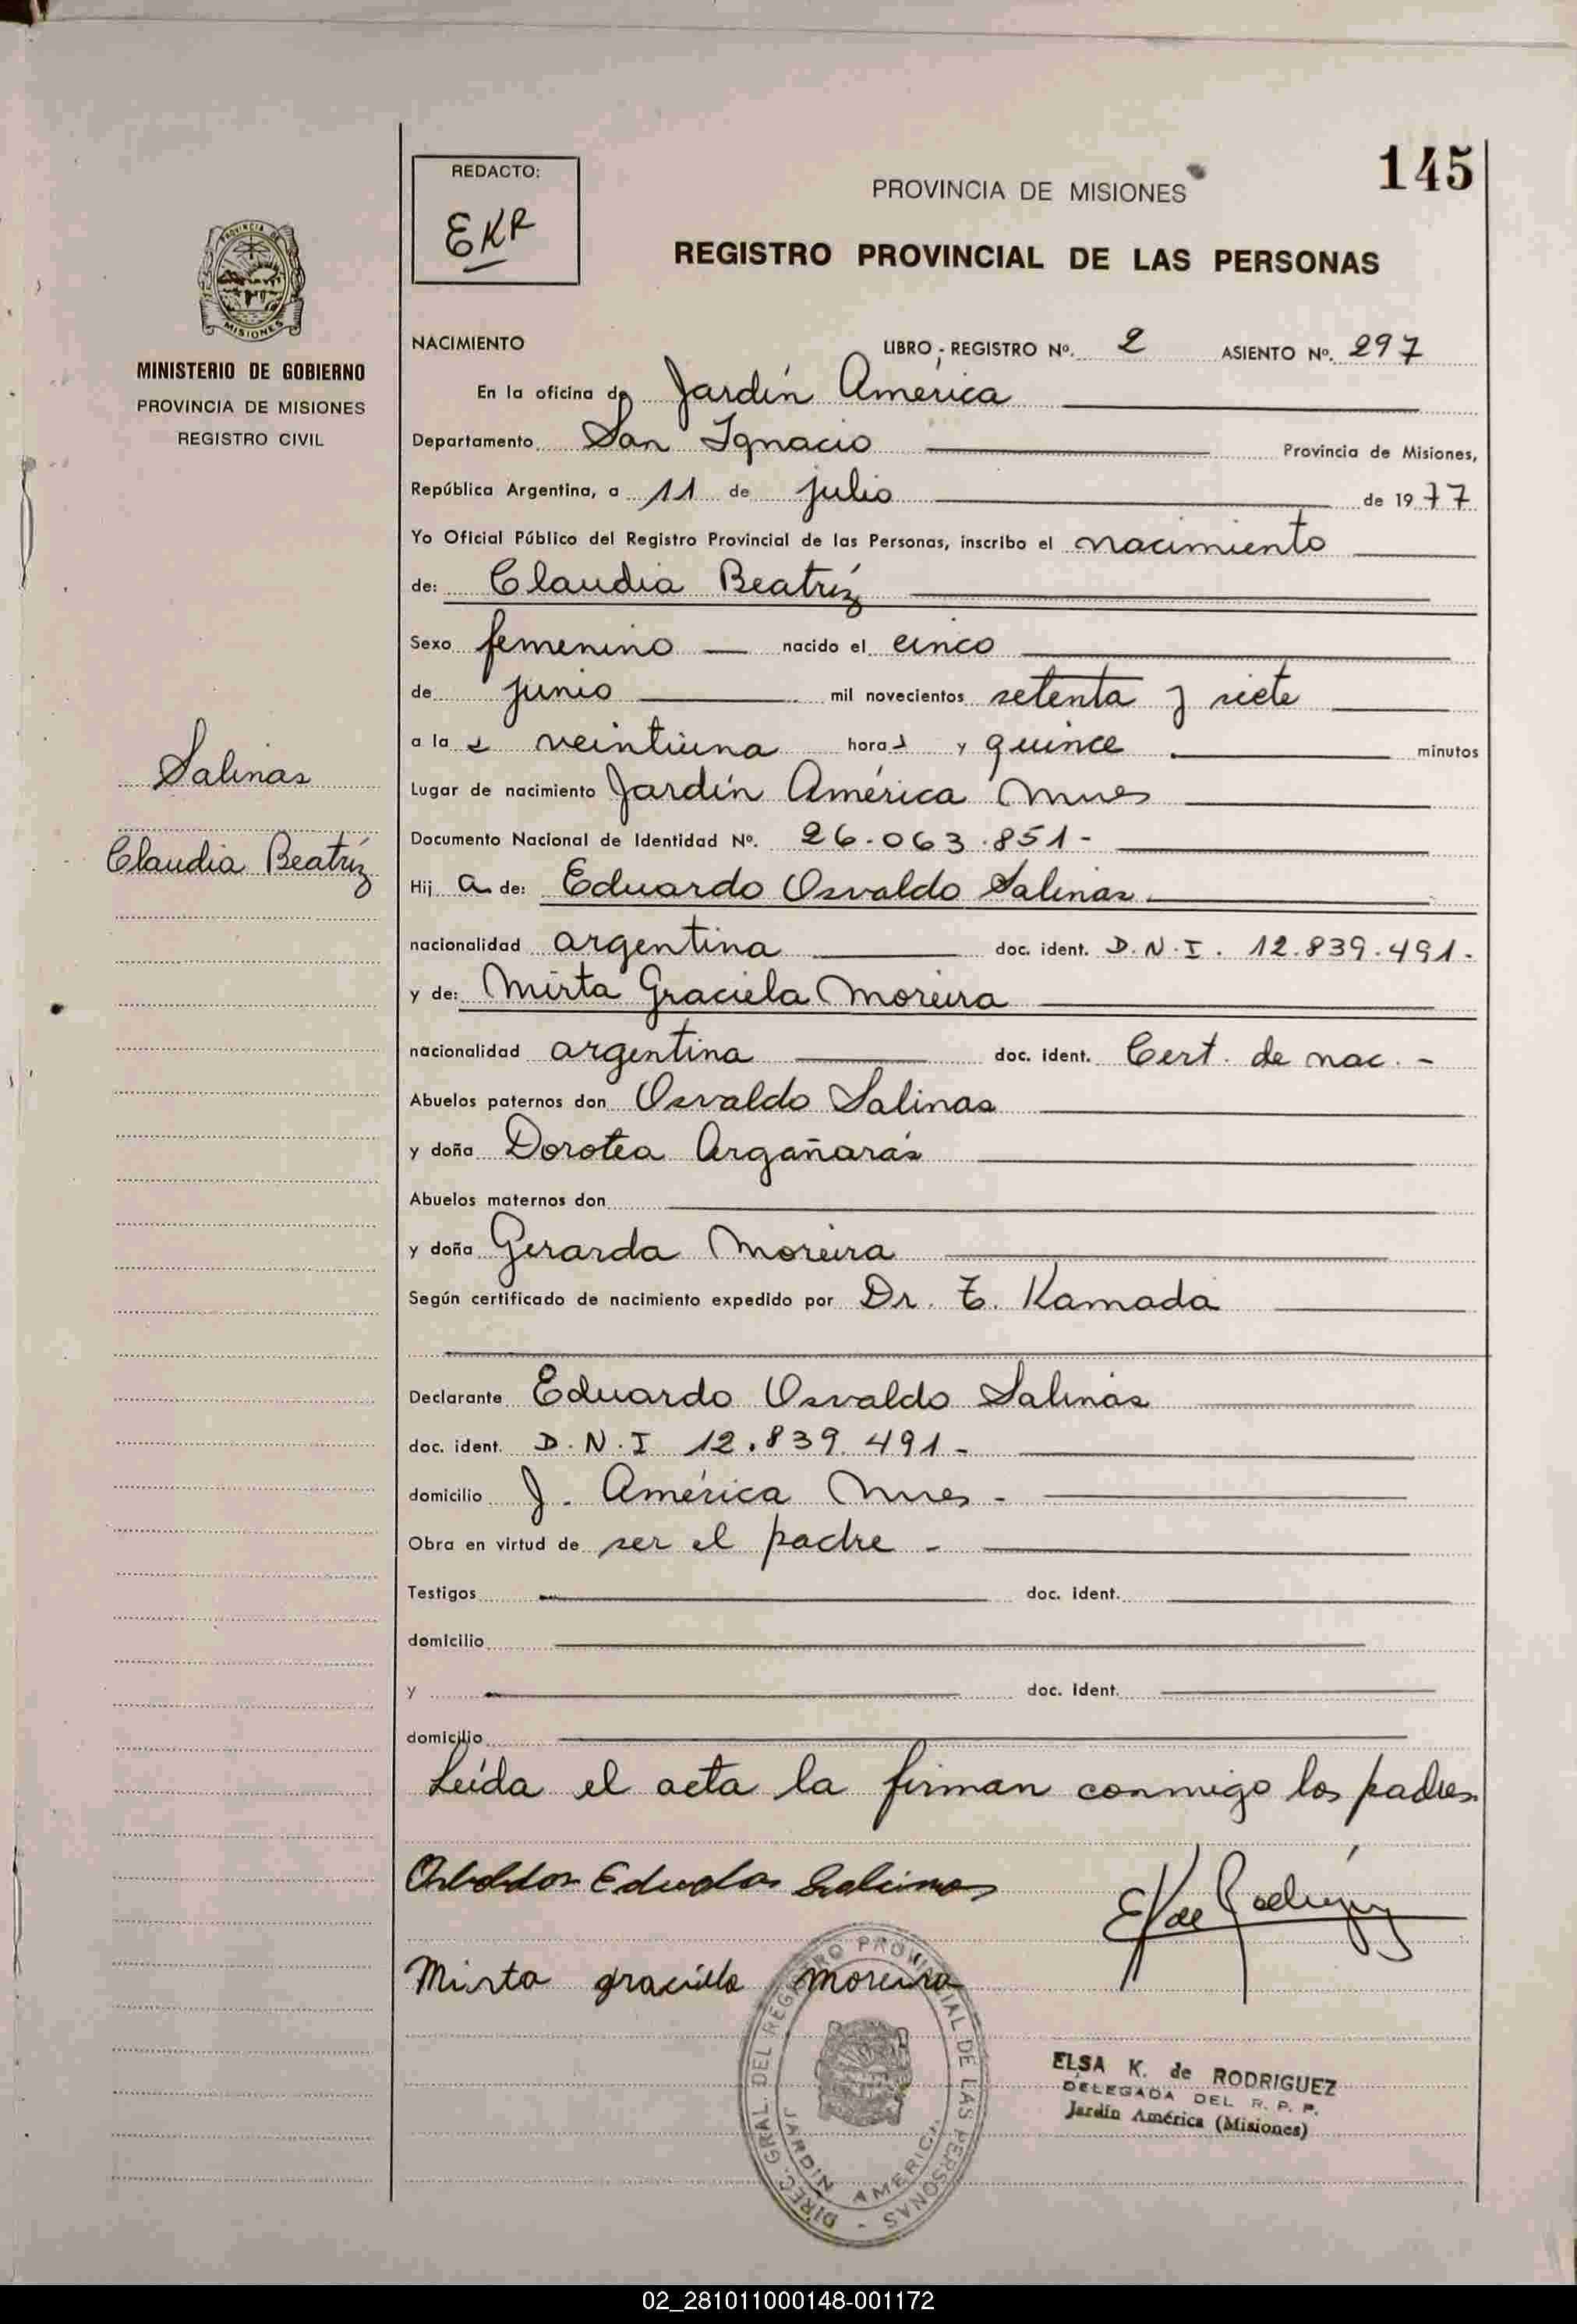 145
REDACTO:
EKR
PROVINCIA DE MISIONES
REGISTRO PROVINCIAL DE LAS PERSONAS
PROVINCIA DE
MISIONES
MINISTERIO DE GOBIERNO
PROVINCIA DE MISIONES
REGISTRO CIVIL
Salinas
Claudia Beatríz
NACIMIENTO LIBRO; REGISTRO Nº. 2 ASIENTO Nº. 297
En la oficina de Jardín América
Departamento San Ignacio Provincia de Misiones,
República Argentina, a 11 de julio de 1977
Yo Oficial Público del Registro Provincial de las Personas, inscribo el nacimiento
de: Claudia Beatríz
Sexo femenino nacido el cinco
de junio mil novecientos setenta y siete
a la s veintiuna horas y quince minutos
Lugar de nacimiento Jardín América Mnes
Documento Nacional de Identidad Nº. 26.063.851-
Hij a de: Eduardo Osvaldo Salinas
nacionalidad argentina doc. ident. D.N.I. 12.839.491.-
y de: Mirta Graciela Moreira
nacionalidad argentina doc. ident. Cert. de nac. -
Abuelos paternos don Osvaldo Salinas
y doña Dorotea Argañarás
Abuelos maternos don
y doña Gerarda Moreira
Según certificado de nacimiento expedido por Dr. T. Kamada
Declarante Eduardo Osvaldo Salinas
doc. ident. D.N.I 12.839.491-
domicilio J. América Mnes -
Obra en virtud de ser el padre -
Testigos doc. ident.
domicilio
y doc. ident.
domicilio
Leída el acta la firman conmigo los padres
Salinas
EK de Rodriguez
Mirta graciela moreira
DIREC. GRAL. DEL REGISTRO PROVINCIAL DE LAS PERSONAS -
JARDIN AMERICA
ELSA K. de RODRIGUEZ
DELEGADA DEL R. P. P.
Jardín América (Misiones)
02_281011000148-001172